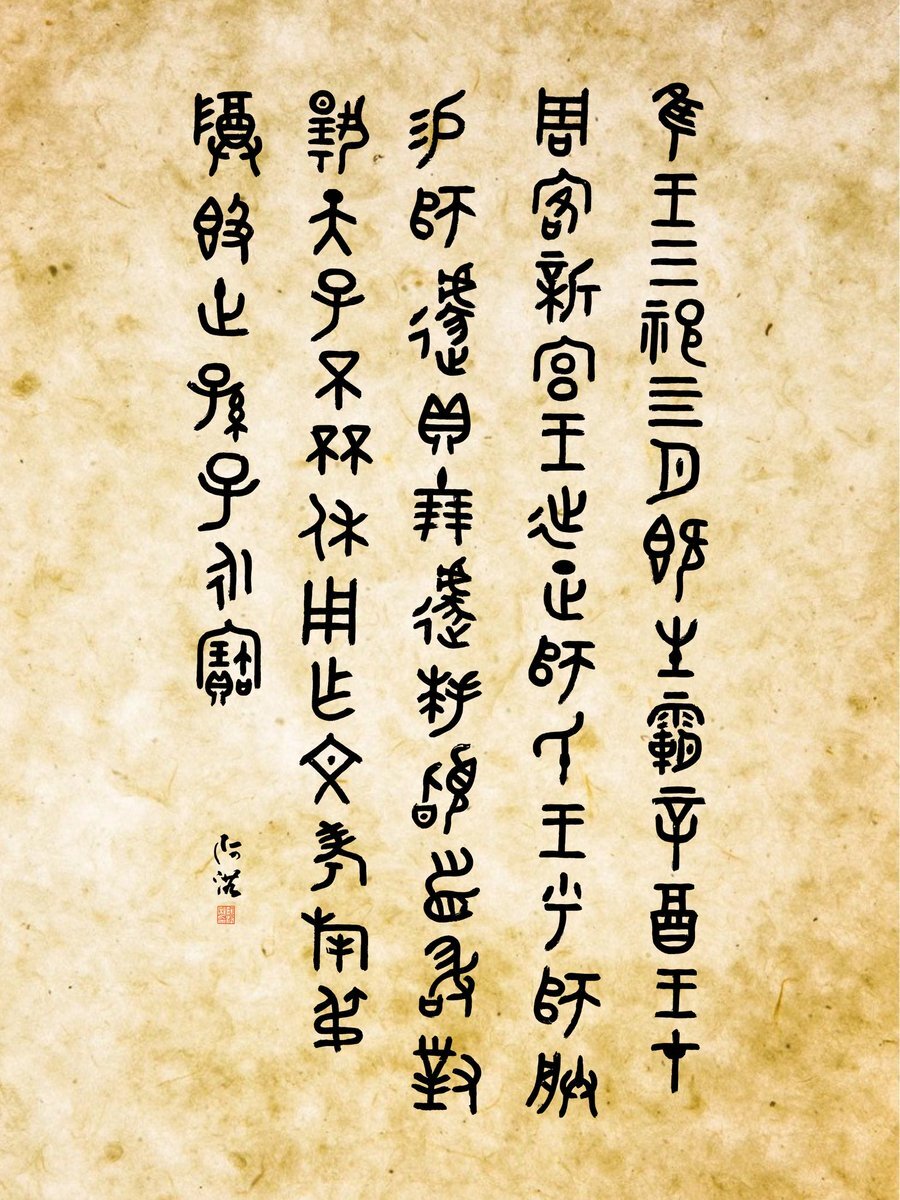 隹王三祀四月既生霸辛酉王才
周客新宮王征正師氏王乎師朕
易師遽貝十朋遽拜稽首敢對
揚天子不丕休用乍文考旄叔
尊簋世孫子永寶